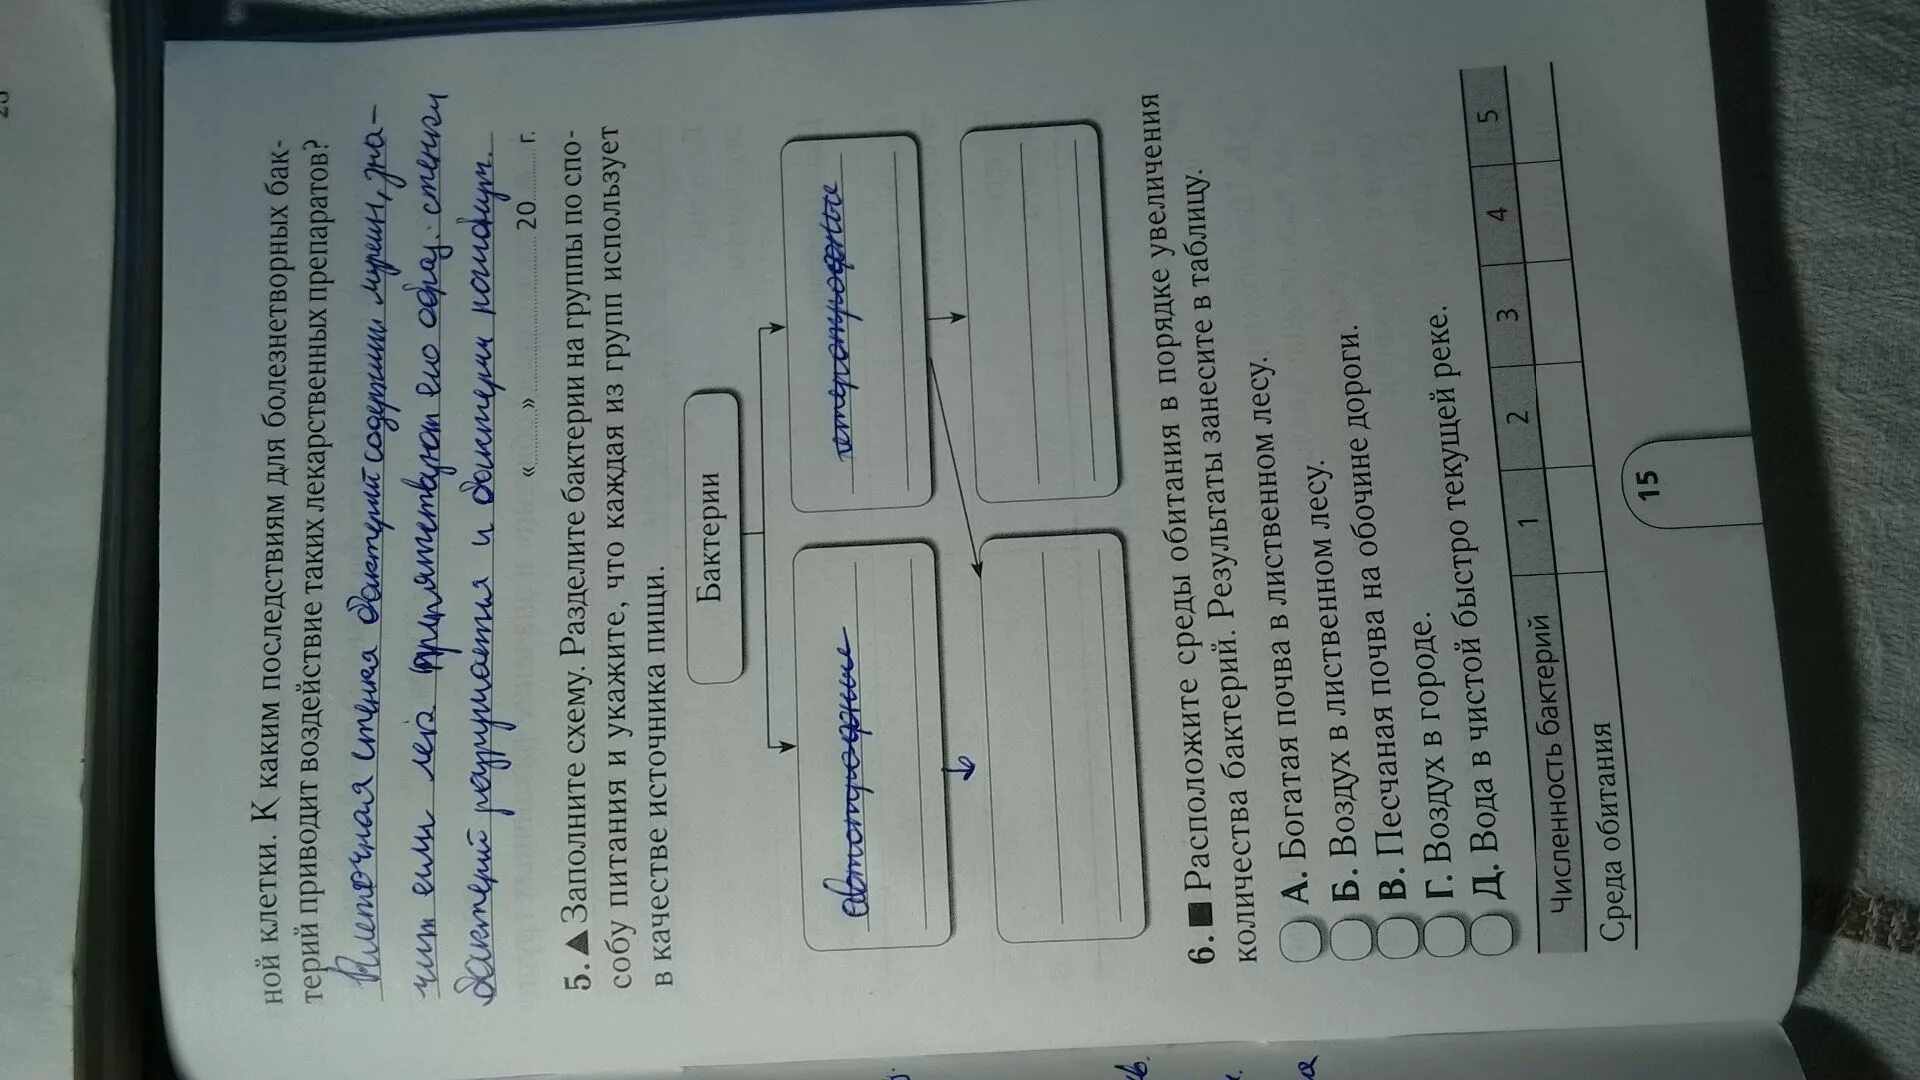 ной клетки. К каким последствиям для болезнетворных бак-
терий приводит воздействие таких лекарственных препаратов?
Клеточная стенка бактерий содержит муреин, зна-
чит если лек. препятствуют его образ. стенки
бактерий разрушатся и бактерии погибнут.
« » 20 г.
5. ▲ Заполните схему. Разделите бактерии на группы по спо-
собу питания и укажите, что каждая из групп использует
в качестве источника пищи.
Бактерии
автотрофные
гетеротрофные
6. ■ Расположите среды обитания в порядке увеличения
количества бактерий. Результаты занесите в таблицу.
А. Богатая почва в лиственном лесу.
Б. Воздух в лиственном лесу.
В. Песчаная почва на обочине дороги.
Г. Воздух в городе.
Д. Вода в чистой быстро текущей реке.
Численность бактерий 1 2 3 4 5
Среда обитания
15